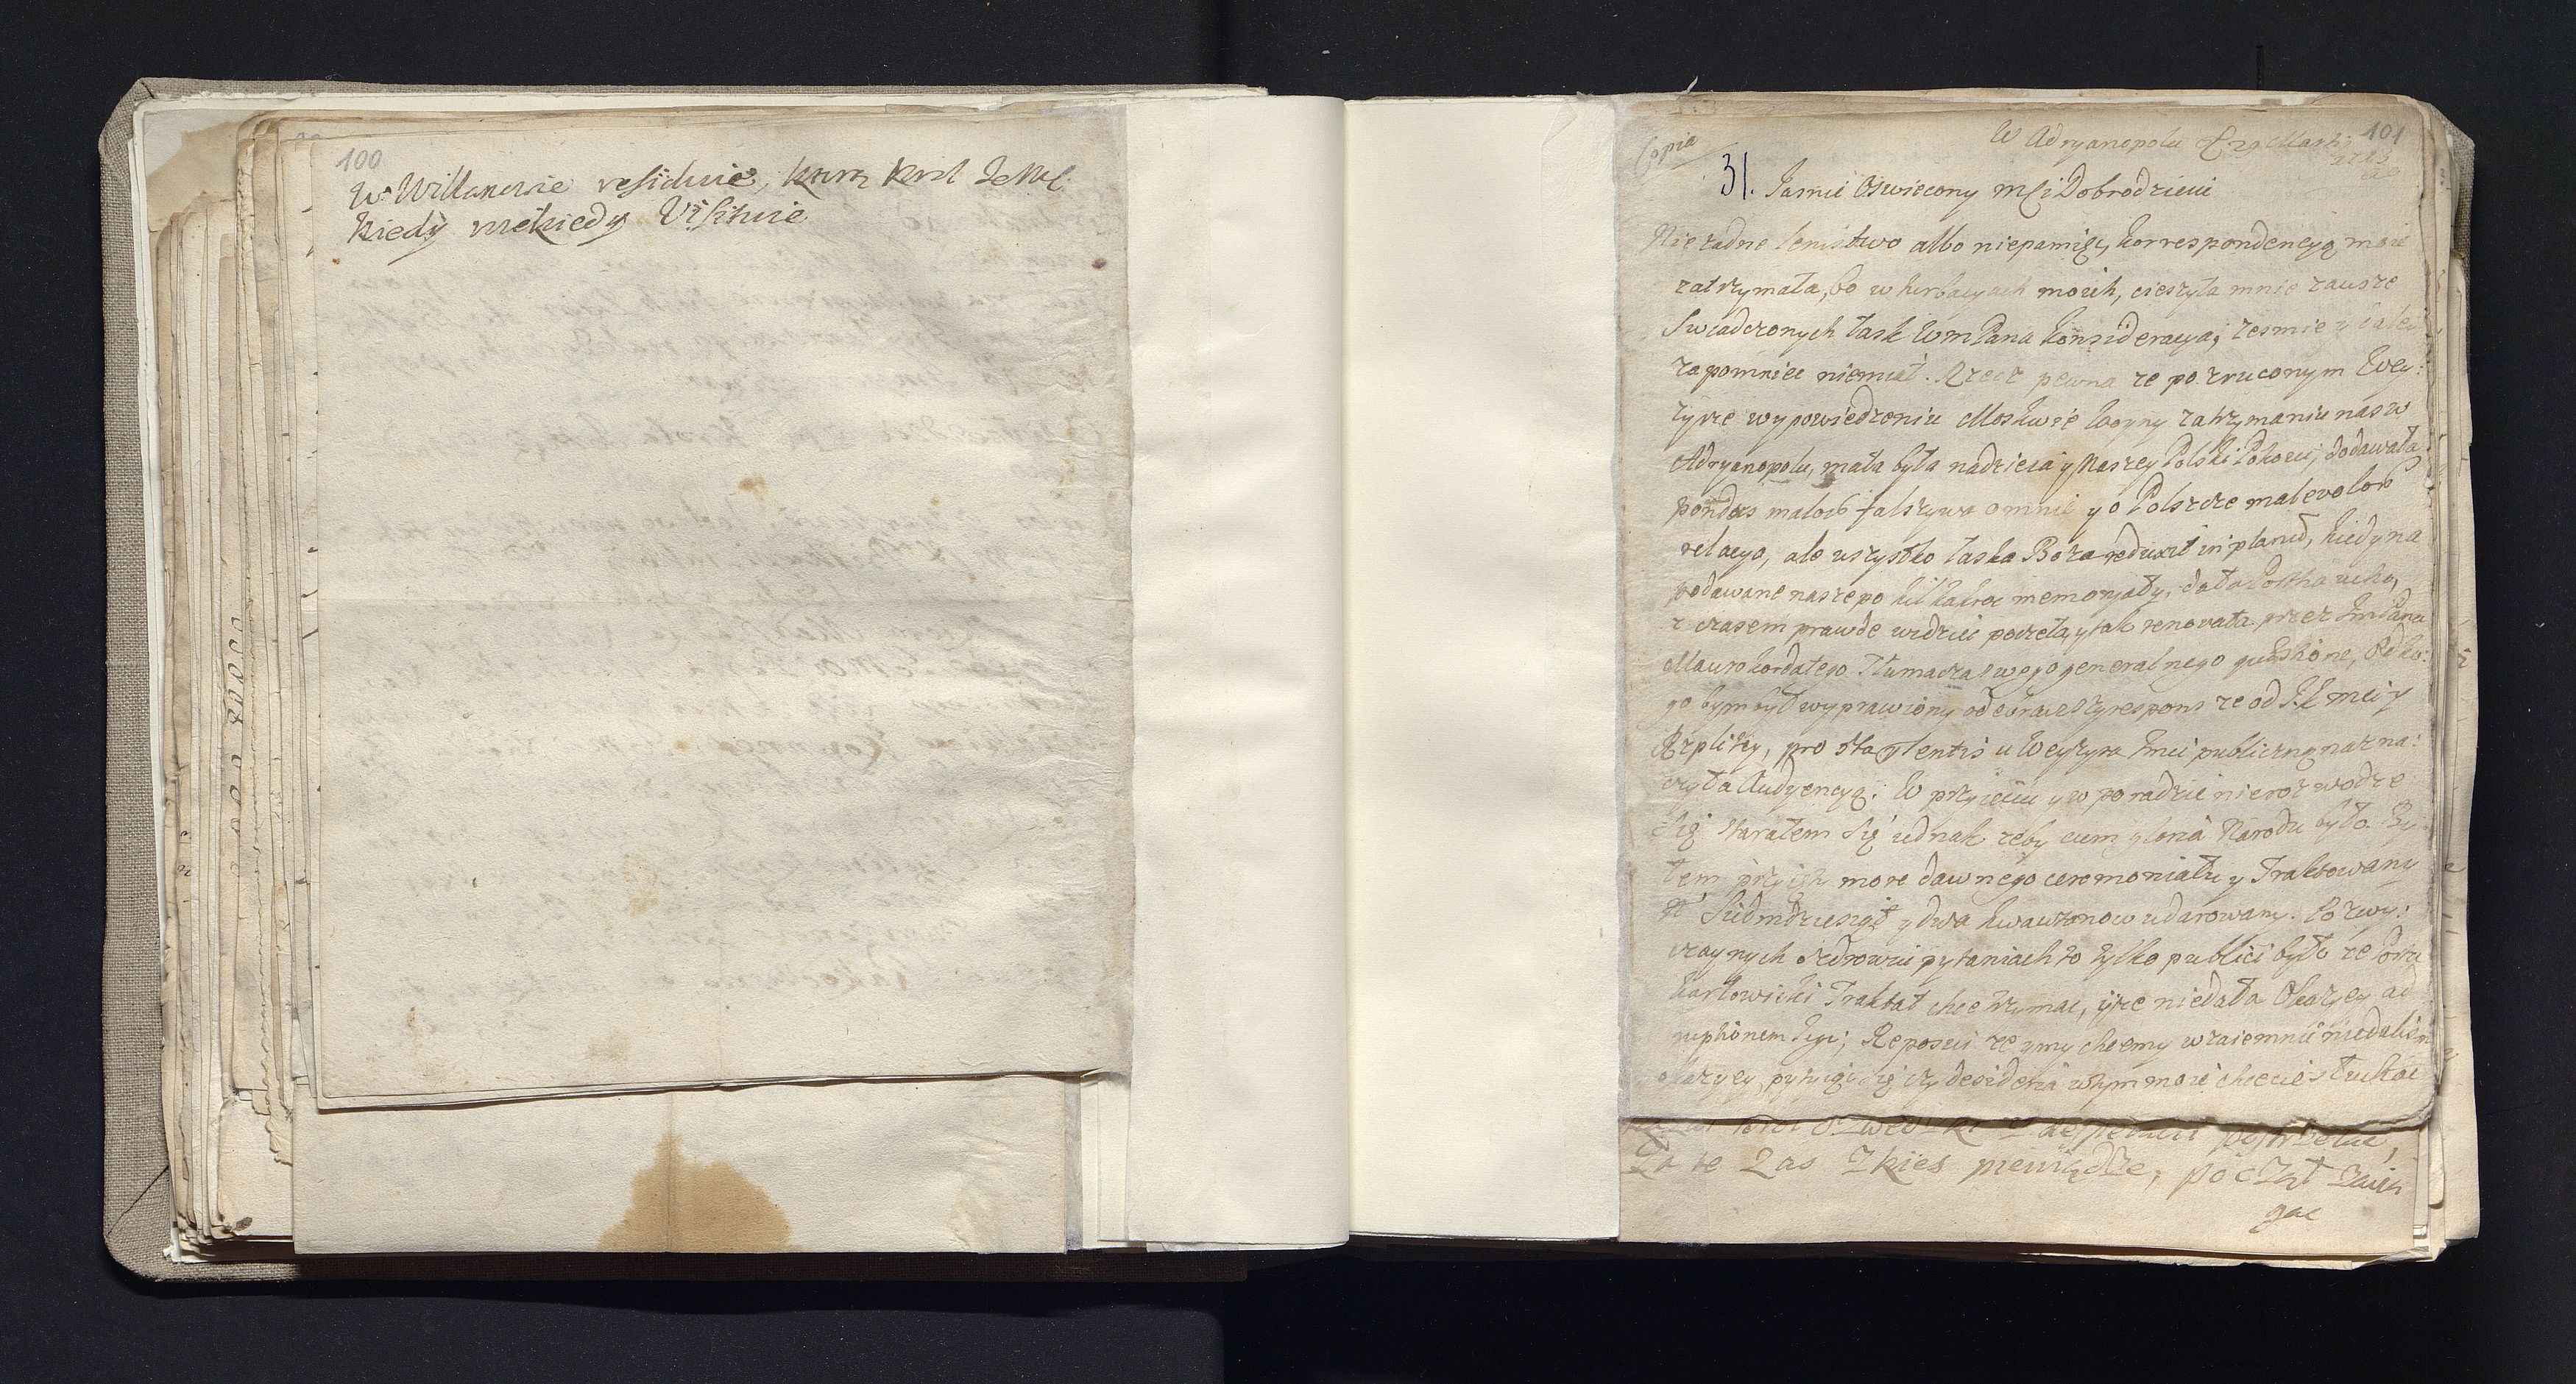 100
W Willanowie residuie, ktorą Krol JeMc
kiedy niekiedy Visituie
Copia
W Adryanopolu D. 29 Marti 101
31. Jasnie Oswiecony Msci Dobrodzieiu
Nie żadne lenistwo albo niepamięc, korrespondencyą moię
zatrzymała, bo w turbacyach moich, cieszyła mnie zawsze
swiadczonych łask WmPana konsideracya, zesmie y
zapomniec niemiał. Rzecz pewna ze po zruconym Wey:
zyrze wypowiedzeniu Moskwie Woyny zatrzymaniu nas w
Adryanopolu, mała była nadzieia y Naszey Polski Pokoiu, dodawała
pondus malorum falszywa o mnie y o Polszcze malevolor
relacya, ale wszystko łaska Boża reduxit in planum, kiedy na
podawane nasze po kilkakroc memoryały, dała Porta ucho,
z czasem prawdę widziec poczęła, y tak renovata przez ImPana
Maurokordatego Tłumacza swego generalnego questione, Od ko:
go bym był wyprawiony odebrawszy respons ze od JKMci y
Rzpltey, pro sta lentis u Weyzyra Imci publiczną nazna:
czyła Audyencyą. W przyięciu y w poradzie nierozwodze
się starałem się iednak zeby cum gloria Narodu było. By
łem przyięty more dawnego ceremoniału y Traktowany
Siedmdziesiąt y dwa kwawtanow udarowany. Po zwy:
czaynych o zdrowie pytaniach to tylko publici było ze Porta
Karłowicki Traktat chce trzymac, ize niedała Okazyey ad
ruptionem Legi; Reposui ze y my chcemy wzaiemnie niedalismy
okazyey, pytaiąc się czy desideria w tym moie chcecie słuchac
Za te zas 7 kies pieniędzy, począł zacią
gac